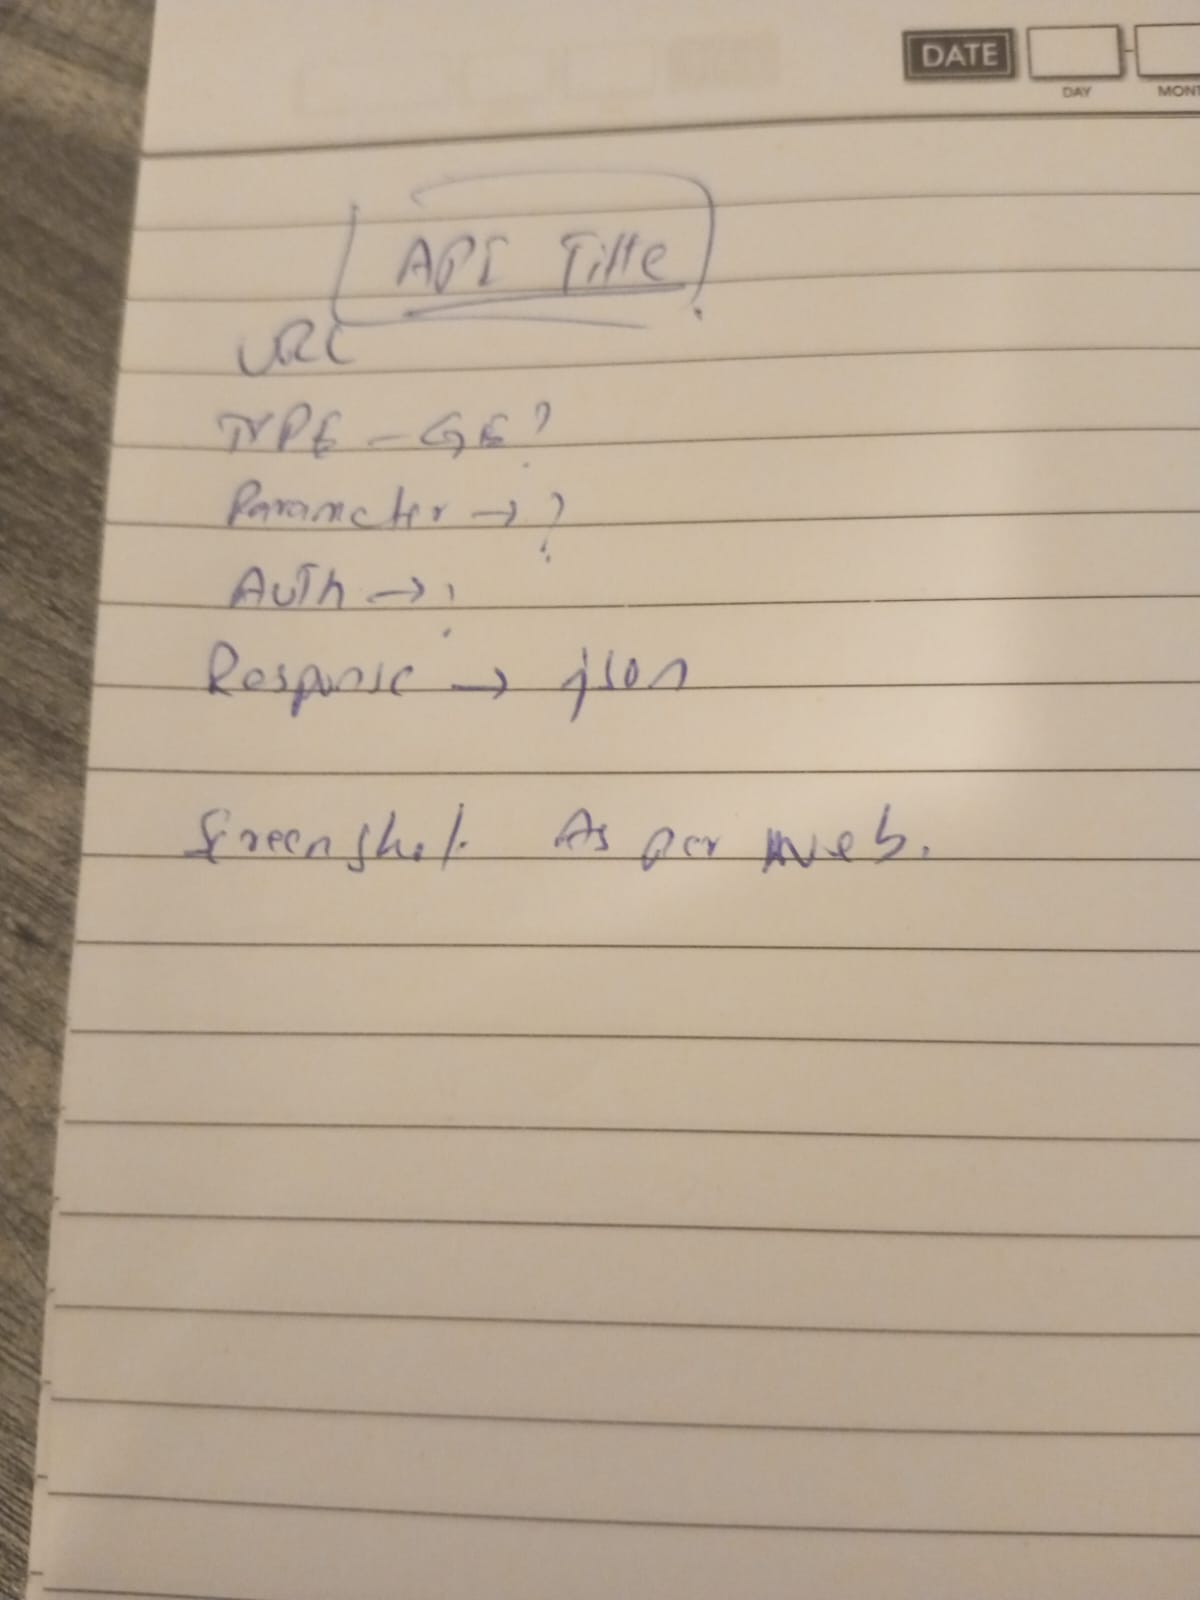 DATE
DAY
MONT
API Title
URL
TYPE - GE?
Parameter → ?
Auth → ?
Response → json
Screenshot. As per web.